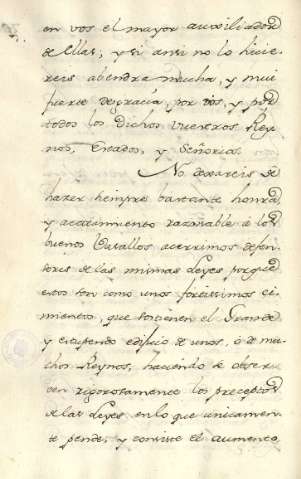 en vos el mayor auxiliador
de ellas; y si ansi no lo hicie-
reis abendra mucha, y mui
fuerte desgracia, por vos, y por
todos los Dichos Vuestros Rey-
nos, Estados, y Señorios.
No dexareis de
hazer siempre bastante honrra
y acatamiento razonable à los
buenos Vasallos acerrimos defen-
sores de las mismas Leyes porque
estos son como unos fortissimos ci-
mientos, que sostienen el Grande
y estupendo edificio de unos, ò mu-
chos Reynos, haciendo se obser-
ven rigorosamente los preceptos
de las Leyes en lo que unicamen-
te pende, y consiste el aumento